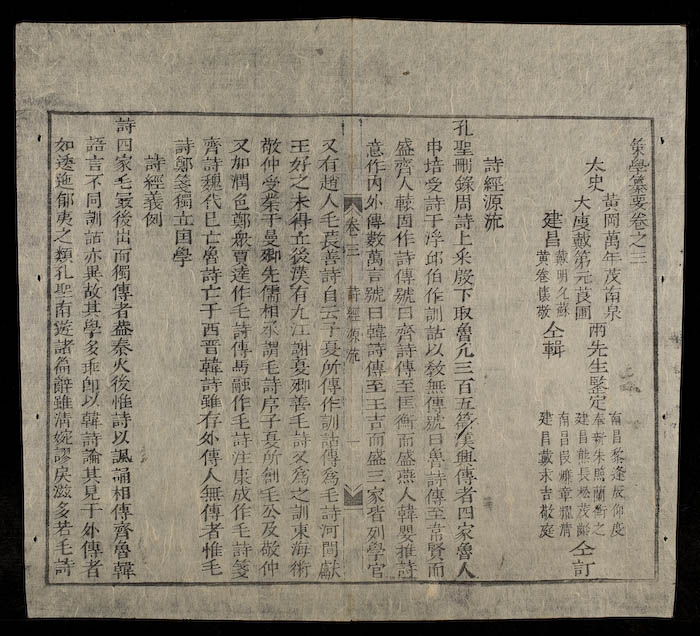 策學纂要卷之三
太史 黃岡萬年茂南泉
大庾戴第元莨圃 兩先生鑒定
建昌 戴明久蘇
黃卷懷敬 仝輯
南昌黎逢辰仰虔
奉新朱 蘭衡之
建昌熊長 茂齡
南昌 章耀清
建昌戴永吉敬庭 仝訂
詩經源流
孔聖刪錄周詩上采殷下取魯凡三百五篇漢興傳者四家魯人
申培受詩于浮邱伯作訓詁以教無傳號曰魯詩傳至韋賢而
盛齊人轅固作詩傳號曰齊詩傳至匡衡而盛燕人韓嬰推詩
意作內外傳數萬言號曰韓詩傳至王吉而盛三家皆列學官
卷三 詩經源流
又有趙人毛萇善詩自云子夏所傳作訓詁傳為毛詩河間獻
王好之未得立後漢有九江謝曼卿善毛詩又為之訓東海衛
敬仲受業于曼卿先儒相承謂毛詩序子夏所創毛公及敬仲
又加潤色鄭衆賈逵作毛詩傳馬融作毛詩注康成作毛詩箋
齊詩魏代已亡魯詩亡于西晋韓詩雖存外傳人無傳者惟毛
詩鄭箋獨立国學
詩經義例
詩四家毛最後出而獨傳者蓋秦火後惟詩以諷誦相傳齊魯韓
語言不同訓詁亦異故其學多乖卽以韓詩論其見于外傳者
如逶迤郁夷之類孔聖南遊諸篇辭雖清婉謬戾滋多若毛詩